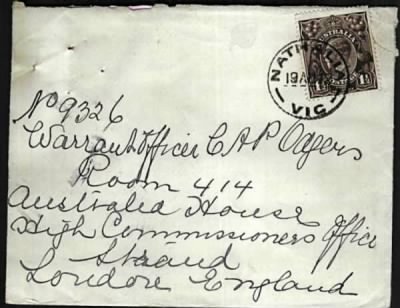 AUSTRALIA
NATHALIA
19 A
VIC
1½ 1½
No 9326
Warrant Officer C A P Ogers
Room 414
Australia House
High Commissioners Office
Strand
London England